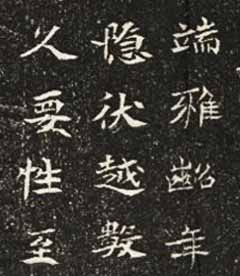 端雅齠年
隐伏越數
久要性至